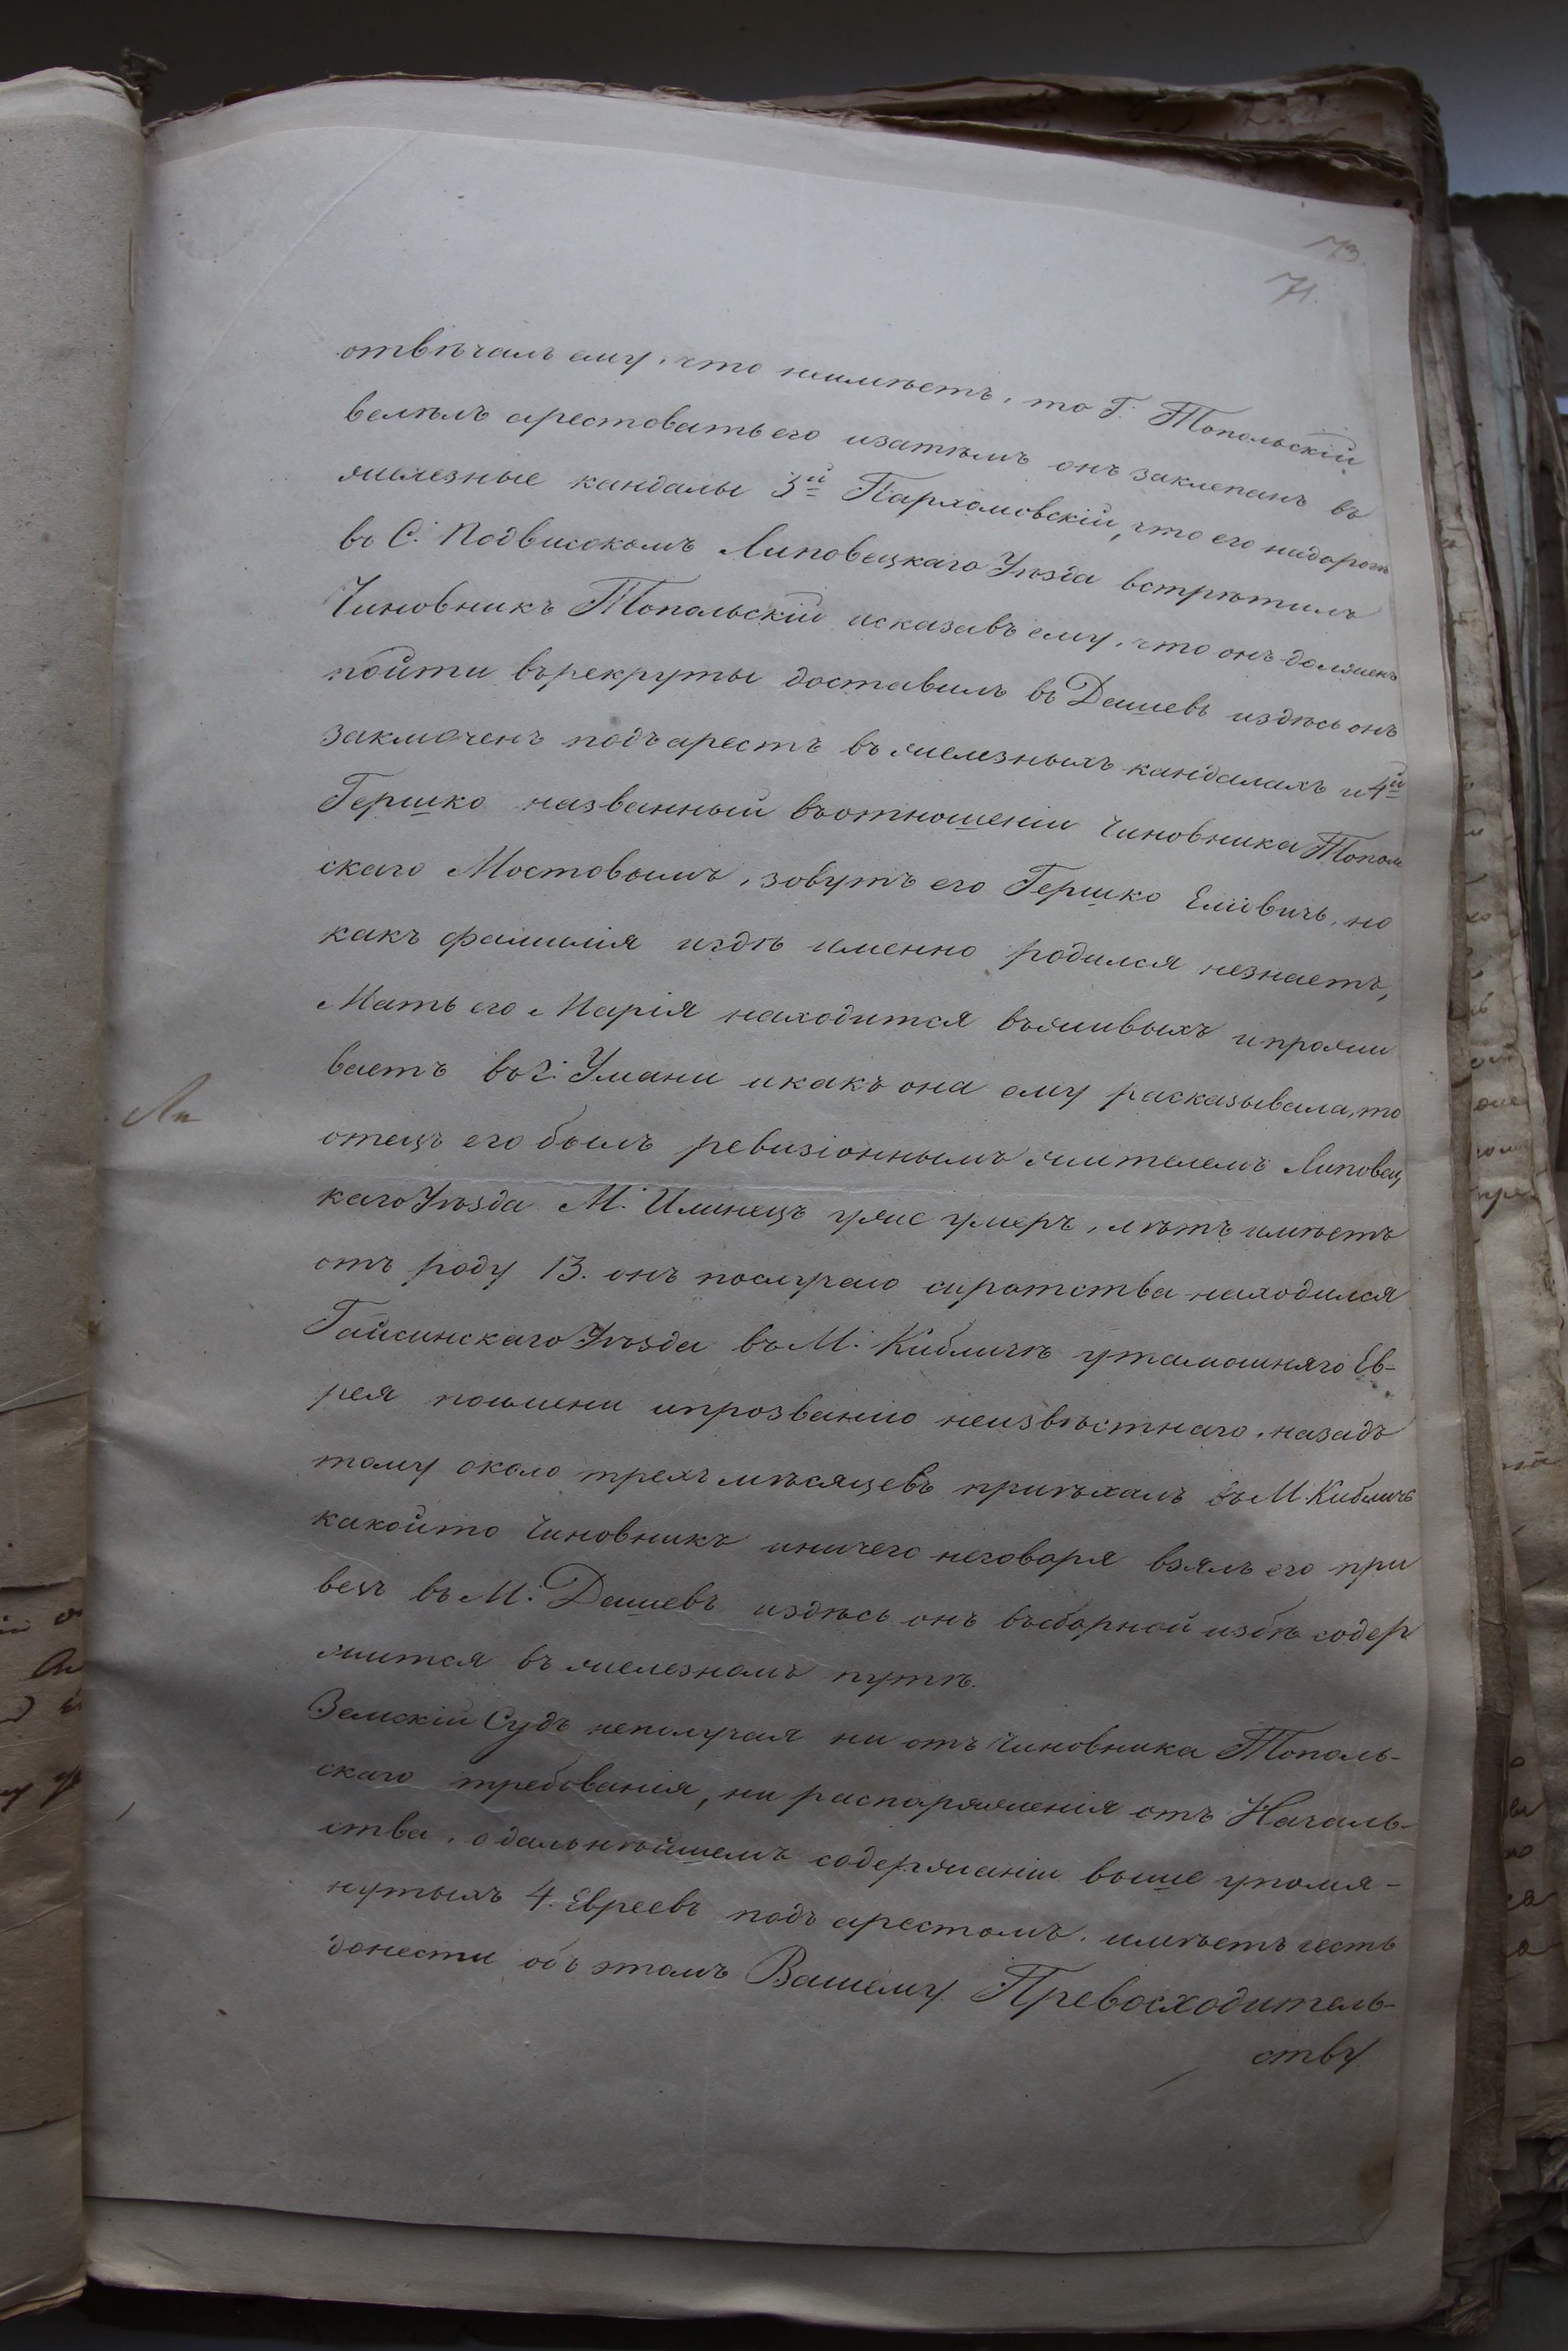 73.
71.
отвѣчалъ ему, что неимѣетъ, то Г. Топольскій
велѣлъ арестовать его изатѣмъ онъ заклепанъ въ
железные кандалы 3й Пархомовскій, что его надорогѣ
въ С. Подвисокомъ Липовецкаго Уѣзда встрѣтилъ
Чиновникъ Топольскій исказавъ ему, что онъ долженъ
пойти въ рекруты доставилъ въ Дашевъ издѣсь онъ
заключенъ подъ арестъ въ железныхъ кандалахъ и 4й
Гершко названный въотношеніи Чиновника Тополь
скаго Мостовымъ, зовутъ его Гершко Еліовичь, но
какъ фамилія игдѣ именно родился незнаетъ,
Мать его Марія находится въживыхъ ипрожи
ваетъ въ г. Умани икакъ она ему расказывала, то
отецъ его былъ ревизіоннымъ жителемъ Липовец
каго Уѣзда М. Илинецъ уже умеръ, лѣтъ имѣетъ
отъ роду 13. онъ послучаю сиротства находился
Гайсинскаго Уѣзда въ М. Кибличѣ утамошняго Ев-
рея поимени ипрозванію неизвѣстнаго, назадъ
тому около трехъ мѣсяцевъ приѣхалъ въ М. Кибличъ
какойто Чиновникъ иничего неговоря взялъ его при
везъ въ М. Дашевъ издѣсь онъ въсборной избѣ содер
жится въ железномъ путѣ.
Земскій Судъ неполучая ни отъ Чиновника Тополь-
скаго требованія, ни распоряженія отъ Началь-
ства, о дальнѣйшемъ содержаніи выше упомя-
нутыхъ 4. Евреевъ подъ арестомъ, имѣетъ честь
донести объ этомъ Вашему Превосходитель-
ству